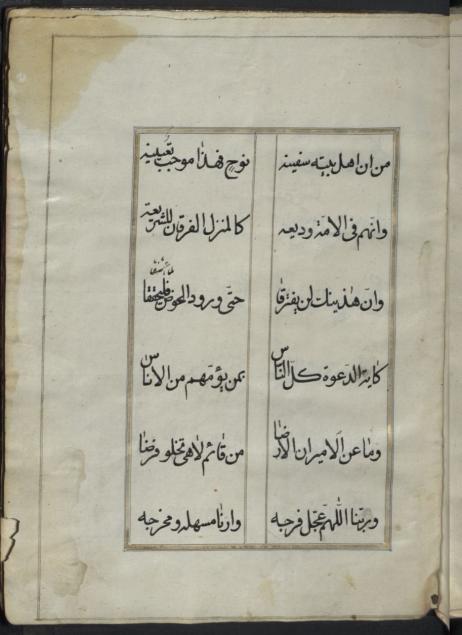 من ان اهل بيته سفينه نوح فهذا موجب تعيينه
وانهم في الامة وديعه كالمنزل الفرقان للشريعة
وان هذينك لن يفترقا حتى ورود الحوض فليحققا
كاية الدعوة كل الناس بمن يؤمهم من الاناس
وما عن الامير ان الارضا من قائم لاهى تخلو فرضا
وربنا اللهم عجل فرجه وارنا مسهله ومخرجه